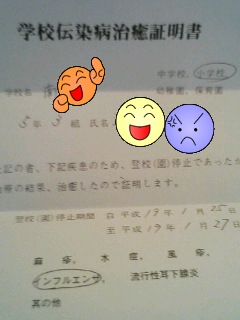 学校伝染病治癒証明書
中学校、小学校
学校名
幼稚園、保育園
5年3組 氏名
記の者、下記疾患のため、登校(園)停止であったが
療の結果、治癒したので証明します。
登校(園)停止期間 自 平成19年1月25日
至 平成19年1月27日
麻疹、水痘、風疹、
インフルエンザ、流行性耳下腺炎
其の他